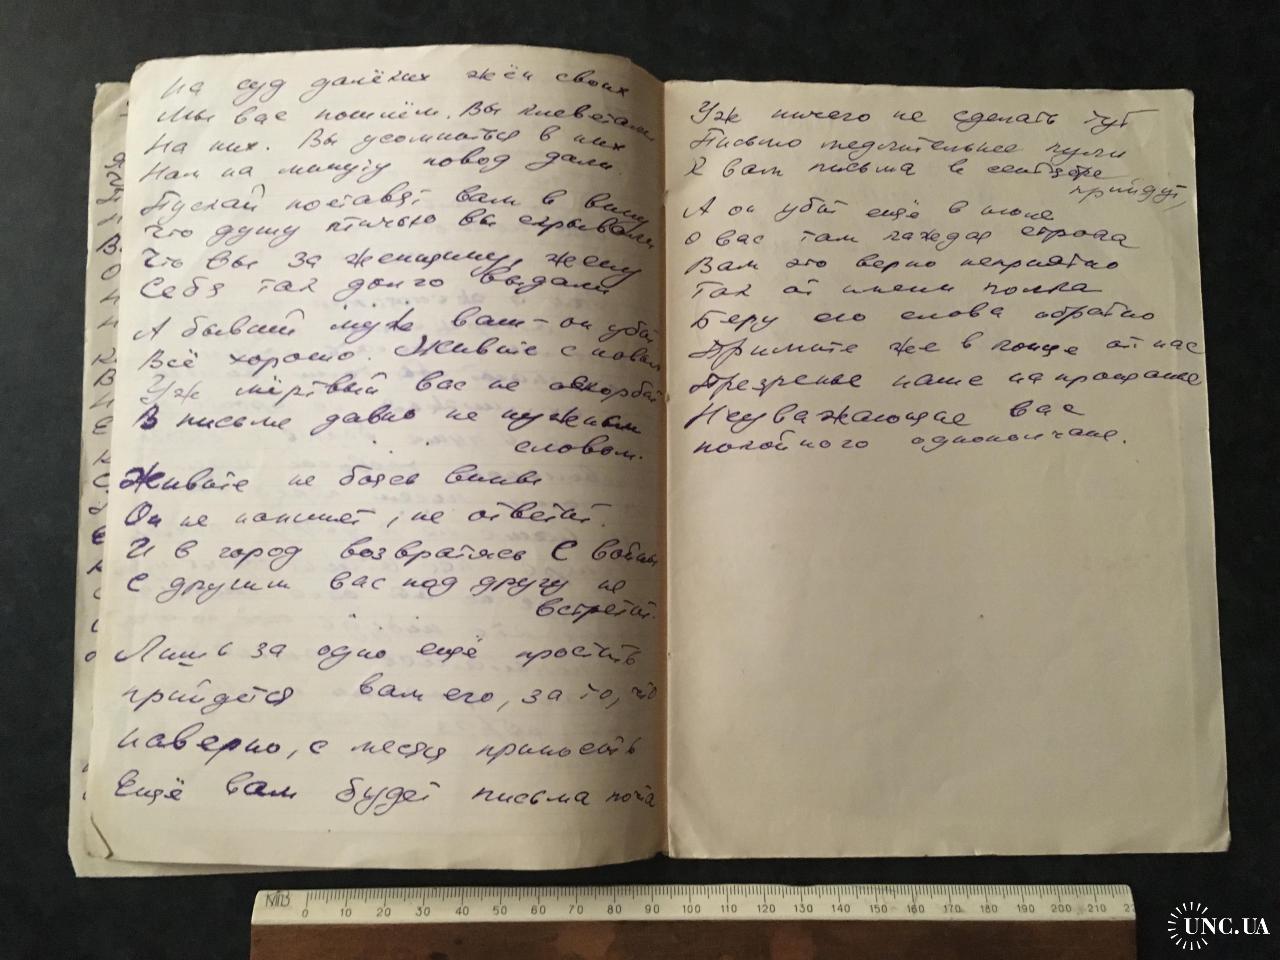 На суд далёких жён своих
Мы вас пошлём. Вы клеветали
На них. Вы усомниться в них
Нам на минуту повод дали.
Пускай поставят вам в вину
Что душу птичью вы скрывали
Что вы за женщину, жену
Себя так долго выдали
А бывший муж ваш - он убит
Всё хорошо. Живите с новым
Уж мёртвый вас не оскорбит
В письме давно не нужным
словом.
Живите не боясь вины
Он не напишет, не ответит.
И в город возвратясь с войны
С другим вас под другу не
встретит.
Лишь за одно ещё простить
придется вам его, за то, что
наверно, с месяц приносить
Ещё вам будет письма почта
Уж ничего не сделать тут
Письмо медлительнее пули
К вам письма в сентябре
прийдут,
А он убит ещё в июле
О вас там каждая строка
Вам это верно неприятно
Так от имени полка
Беру его слова обратно
Примите же в конце от нас
Презренье наше на прощанье
Неуважающие вас
покойного однополчане.
МПВ
0 10 20 30 40 50 60 70 80 90 100 110 120 130 140 150 160 170 180 190 200 210 22
UNC.UA